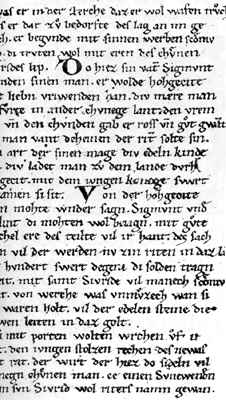 was er in der sterche daz er wol wafen trvch
er dar zv bedorfte des lag an im ge
ch. er begunde mit sinnen werben sconiv
di trvten wol mit eren des chvnen
vrides lip. Do hiez sin vat' Sigmvnt
nden sinen man. er wolde hohgezite
liebn vriwenden han. div mære man
fvrte in ander chvnege lant. den vrem
vn den chvnden gab er ross vn gvt gwat
man vant deheinen der rit' solte sin
art der sinen mage div edeln kinde
div ladet man zv dem lande dvrh
hgezit. mit dem ivngen kvnege swert
amen si sit. Von der hohgezite
mohte wnder sagn. Sigmunt vnd
lint di mohten wol beiagn. mit gvte
chel ere des teilte vil ir hant. des sach
vil der werden zv zin riten in daz la
hvndert swert degen di solden tragn
t. mit samt Sivride vil manech sconiv
von werche was vnmvzzech wan si
waren holt. vil der edelen steine die
wen leiten in daz golt.
i mit porten wolten wrchen vf ir
den ivngen stolzen rechen des newas
t rat. der wirt der hiez do sideln vil
negn chvnen man. ce einen svnewenden
n svn Sivrid wol riters namn gewan.